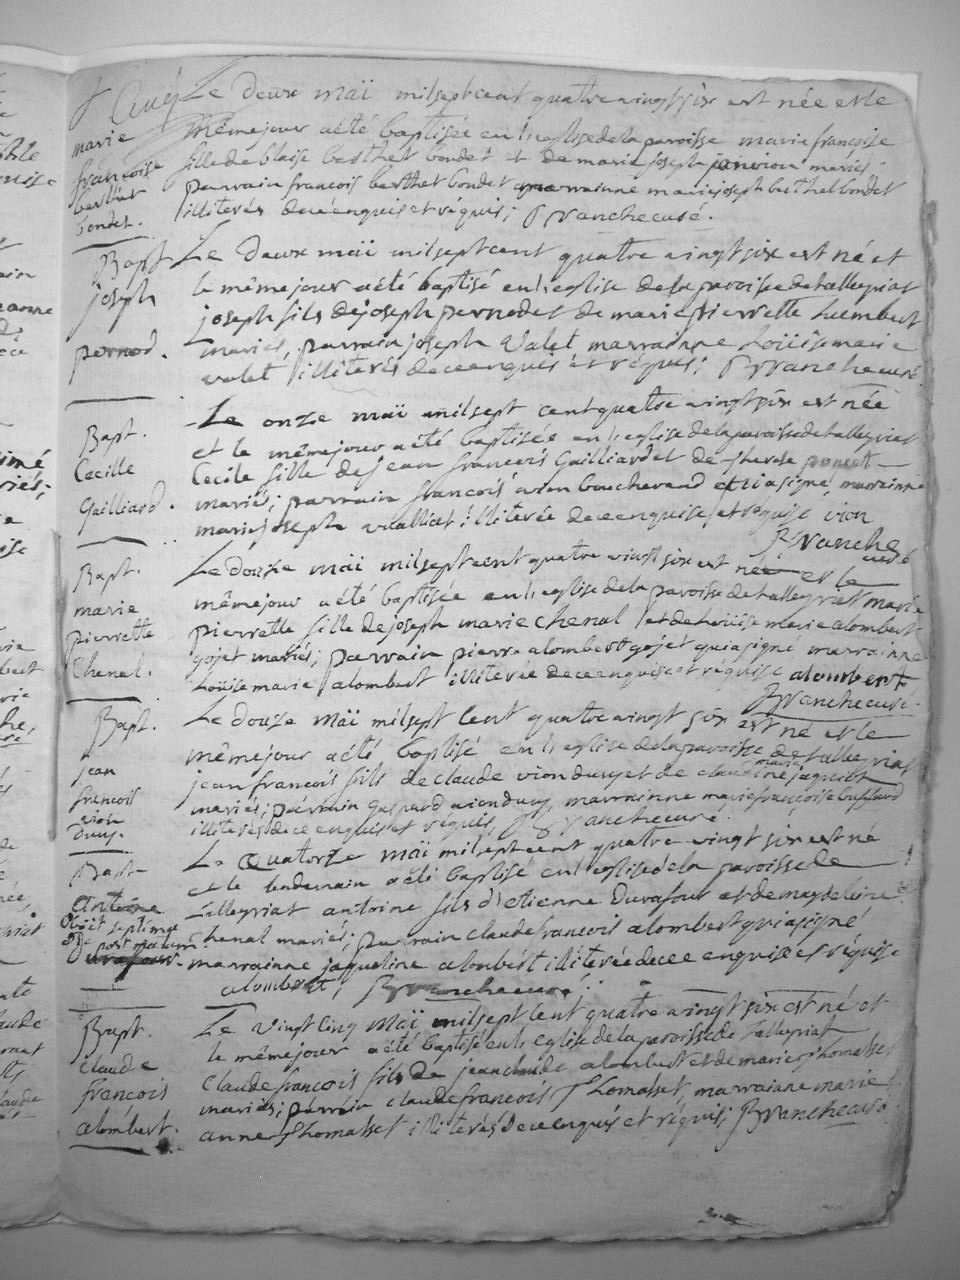 f Cinq Le deux maï mil sept cent quatre vingt six est née et le
marie même jour a été baptisée en l'eglise de la paroisse marie françoise
françoise fille de blaise berthet bondet et de marie joseph mariés
berthet parrain françois berthet bondet marrainne marie joseph berthet bondet
bondet. illiterés de ce enquis et réquis; Branche curé.
Bapt Le deux maï mil sept cent quatre vingt six est né et
joseph le même jour a été baptisé en l'eglise de la paroisse de talleyriat
joseph fils de joseph pernod et de marie pierrette humbert
pernod. mariés, parrain joseph valet marrainne Loüise marie
valet illiterés de ce enquis et réquis; Branche curé.
Le onze maï mil sept cent quatre vingt six est née
Bapt. et le même jour a été baptisée en l'eglise de la paroisse de talleyriat
Cecille Cecile fille de jean françois Gailliard et de therese poncet
Gailliard. mariés; parrain françois vion bouchevand et qui a signé, marrainne
marie joseph illiterée de ce enquise et réquise vion
Branche curé
Bapt. Le douze maï mil sept cent quatre vingt six est née et le
marie même jour a été baptisée en l'eglise de la paroisse de talleyriat marie
pierrette pierrette fille de joseph marie chenal et de loüise marie alombert
Chenal. gojet mariés; parrain pierre alombert gojet qui a signé marrainne
Loüise marie alombert illiterée de ce enquise et réquise alombert
Branche curé.
Bapt. Le douze maï mil sept cent quatre vingt six est né et le
même jour a été baptisé en l'eglise de la paroisse de talleyriat
jean jean françois fils de claude vion duny et de claudine marie jaquiot
françois mariés; parrain gaspard vion duny, marrainne marie françoise
vion duny. illiterés de ce enquis et réquis, Branche curé.
Bapt Le Quatorze maï mil sept cent quatre vingt six est né
et le lendemain a été baptisé en l'eglise de la paroisse de
Antoine talleyriat antoine fils d'etienne Duvafour et de magdeleine
obiit septimo chenal mariés; parrain claude françois alombert qui a signé
die post natum
Duvafour. marrainne jaqueline alombert illiterée de ce enquise et réquise
alombert; Branche curé.
Bapt. Le vingt cinq maï mil sept cent quatre vingt six est né et
le même jour a été baptisé en l'eglise de la paroisse de talleyriat
Claude Claude françois fils de jean claude alombert et de marie thomasset
françois mariés; parrain claude françois Thomasset, marrainne marie
alombert. anne thomasset illiterés de ce enquis et réquis; Branche curé